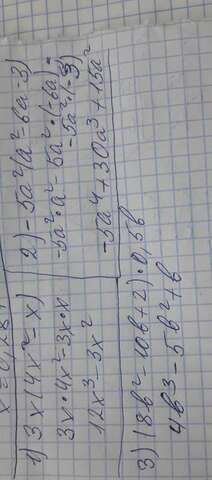 1) 3x(4x²-x)
3x·4x²-3x·x
12x³-3x²
2) -5a²(a²-6a-3)
-5a²·a²-5a²·(-6a)-
-5a²·(-3)
-5a⁴+30a³+15a²
3) (8b²-10b+2)·0,5b
4b³-5b²+b